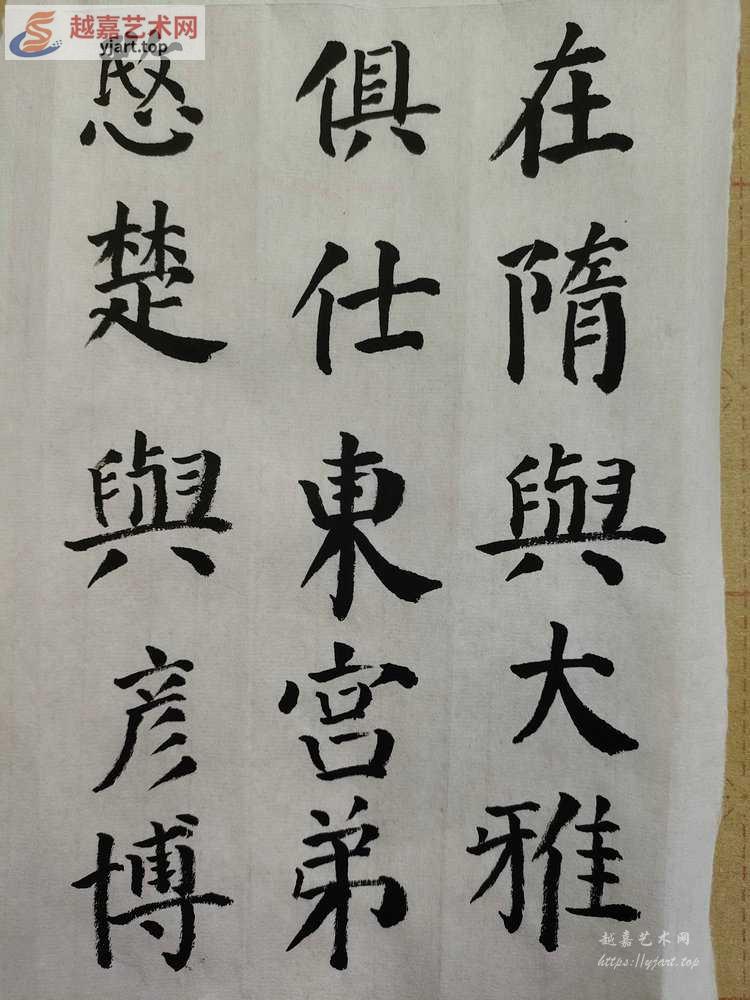 越嘉艺术网
yjart.top
在隋與大雅
俱仕東宫弟
愍楚與彦博
越嘉艺术网
https://yjart.top